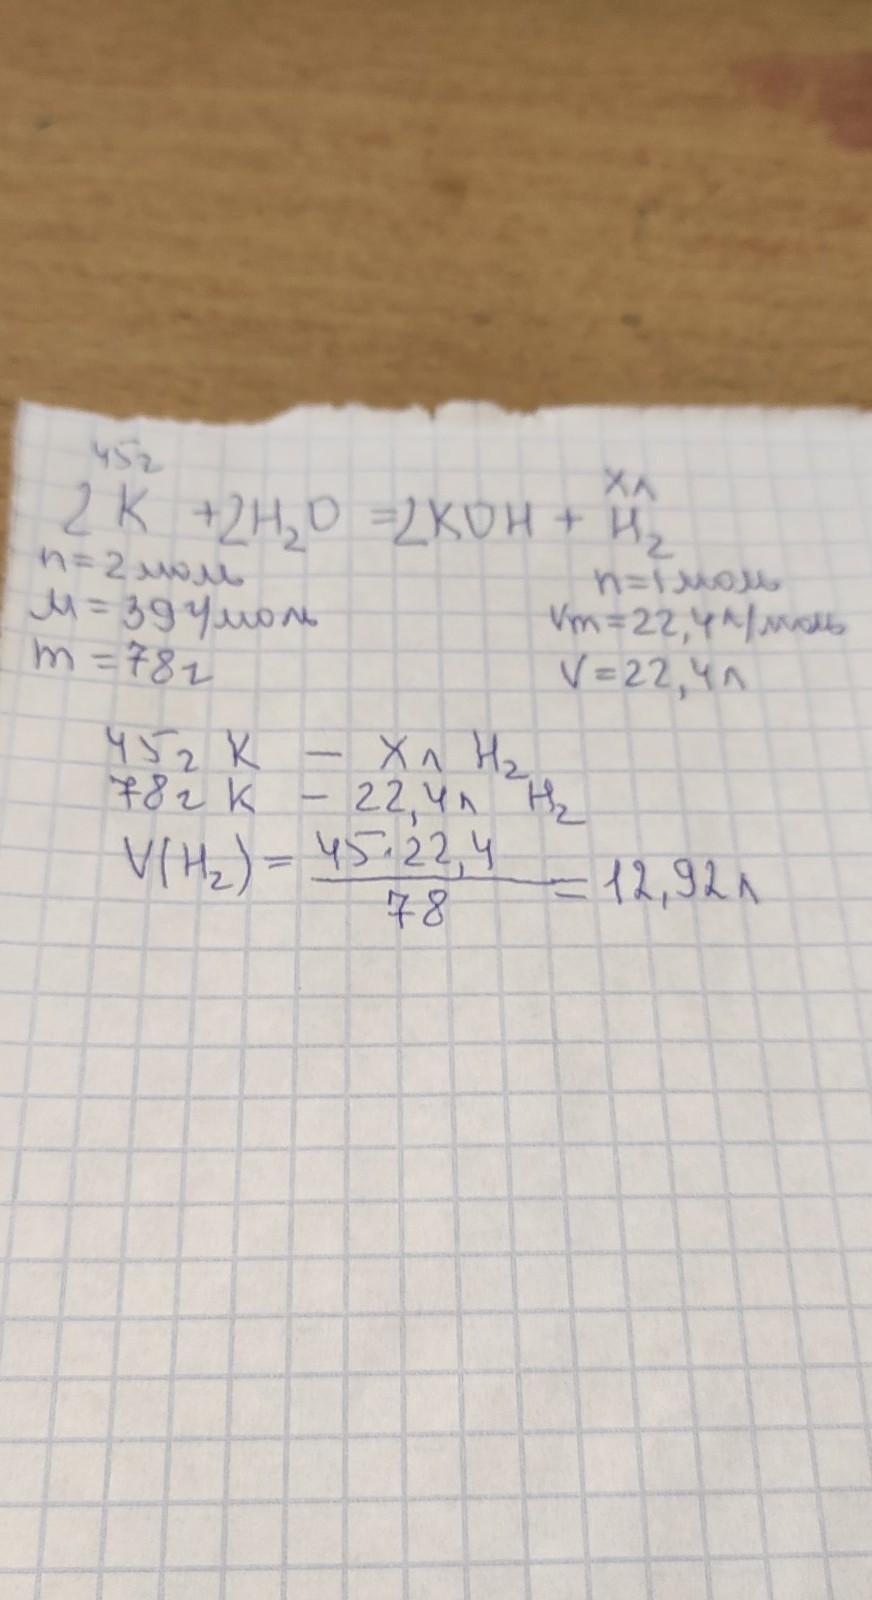 45г хл
2K + 2H₂O = 2KOH + H₂
n = 2 моль n = 1 моль
M = 39 г/моль Vm = 22,4 л/моль
m = 78г V = 22,4 л
45г K – х л H₂
78г K – 22,4 л H₂
V(H₂) = 45·22,4 / 78 = 12,92 л